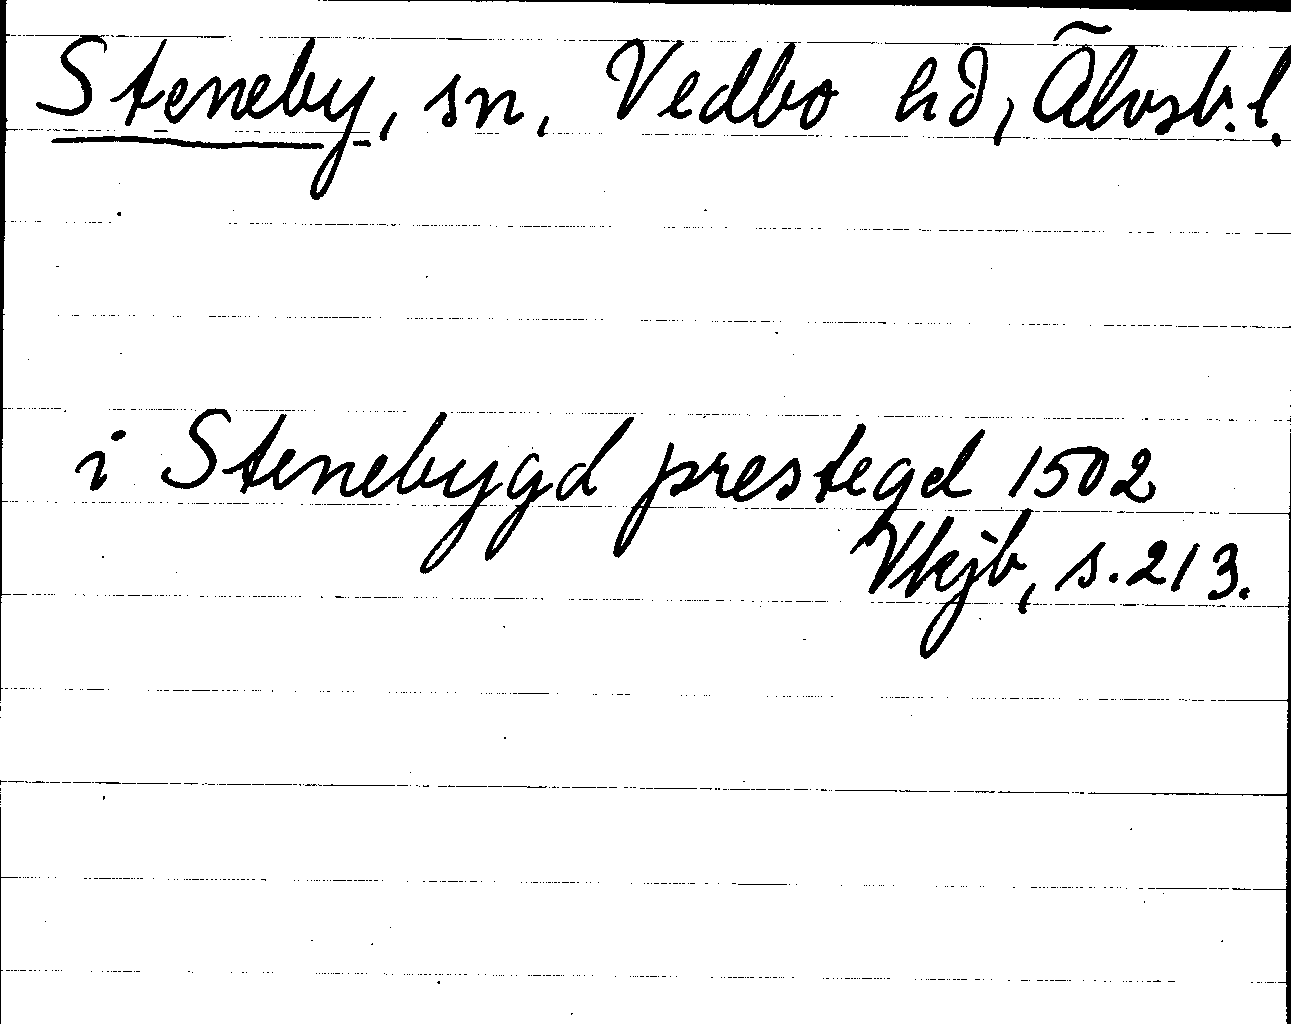 Steneby, sn, Vedbo hd, Älvsb. l.
i Stenebygd prestegd 1502
Vkjb, s. 213.